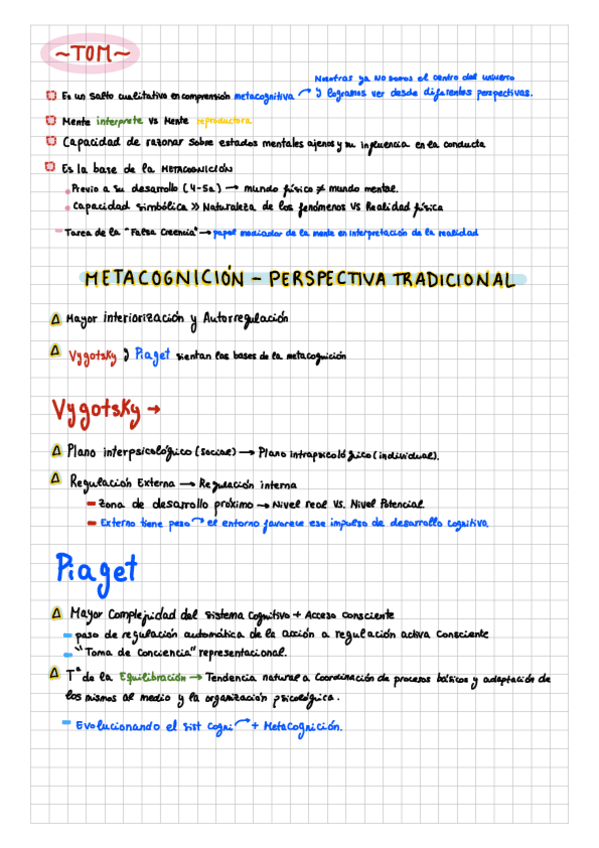 ~TOM~
Nosotras ya no somos el centro del universo
□ Es un salto cualitativo en comprensión metacognitiva → y logramos ver desde diferentes perspectivas.
□ Mente interprete vs Mente reproductora
□ Capacidad de razonar sobre estados mentales ajenos y su influencia en la conducta
□ Es la base de la METACOGNICIÓN
• Previo a su desarrollo (4-5a) → mundo físico ≠ mundo mental.
• Capacidad simbólica >> Naturaleza de los fenómenos VS Realidad física
- Tarea de la "Falsa Creencia" → papel mediador de la mente en interpretación de la realidad
METACOGNICIÓN - PERSPECTIVA TRADICIONAL
Δ Mayor interiorización y Autorregulación
Δ Vygotsky y Piaget sientan las bases de la metacognición
Vygotsky →
Δ Plano interpsicológico (social) → Plano intrapsicológico (individual).
Δ Regulación Externa → Regulación interna
- Zona de desarrollo próximo → Nivel real VS. Nivel Potencial.
- Externo tiene peso → el entorno favorece ese impulso de desarrollo cognitivo
Piaget
Δ Mayor Complejidad del sistema Cognitivo + Acceso consciente
- paso de regulación automática de la acción a regulación activa consciente
- "Toma de Conciencia" representacional.
Δ Tª de la Equilibración → Tendencia natural a Coordinación de procesos básicos y adaptación de
los mismos al medio y la organización psicológica.
- Evolucionando el sist cogni → + Metacognición.